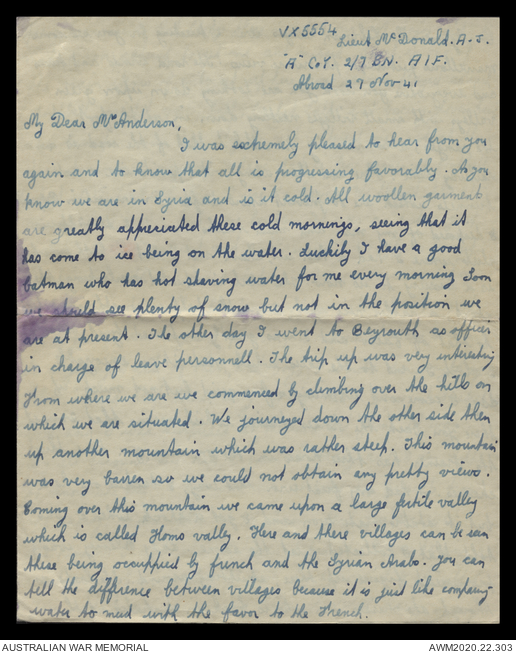 VX5554
Lieut McDonald. A. J.
"A" Coy. 2/7 BN. AIF.
Abroad 29 Nov 41
My Dear Mrs Anderson,
I was extremely pleased to hear from you
again and to know that all is progressing favorably. As you
know we are in Syria and is it cold. All woollen garment
are greatly appreciated these cold mornings, seeing that it
has come to ice being on the water. Luckily I have a good
batman who has hot shaving water for me every morning Soon
we should see plenty of snow but not in the position we
are at present. The other day I went to Beyrouth as officer
in charge of leave personnell. The trip up was very interesting
From where we are we commenced by climbing over the hills on
which we are situated. We journeyed down the other side then
up another mountain which was rather steep. This mountain
was very barren so we could not obtain any pretty views.
Coming over this mountain we came upon a large fertile valley
which is called Homs valley. Here and there villages can be seen
these being occuppied by french and the Syrian Arabs. You can
tell the difference between villages because it is just like comparing
water to mud with the favor to the French.
AUSTRALIAN WAR MEMORIAL
AWM2020.22.303